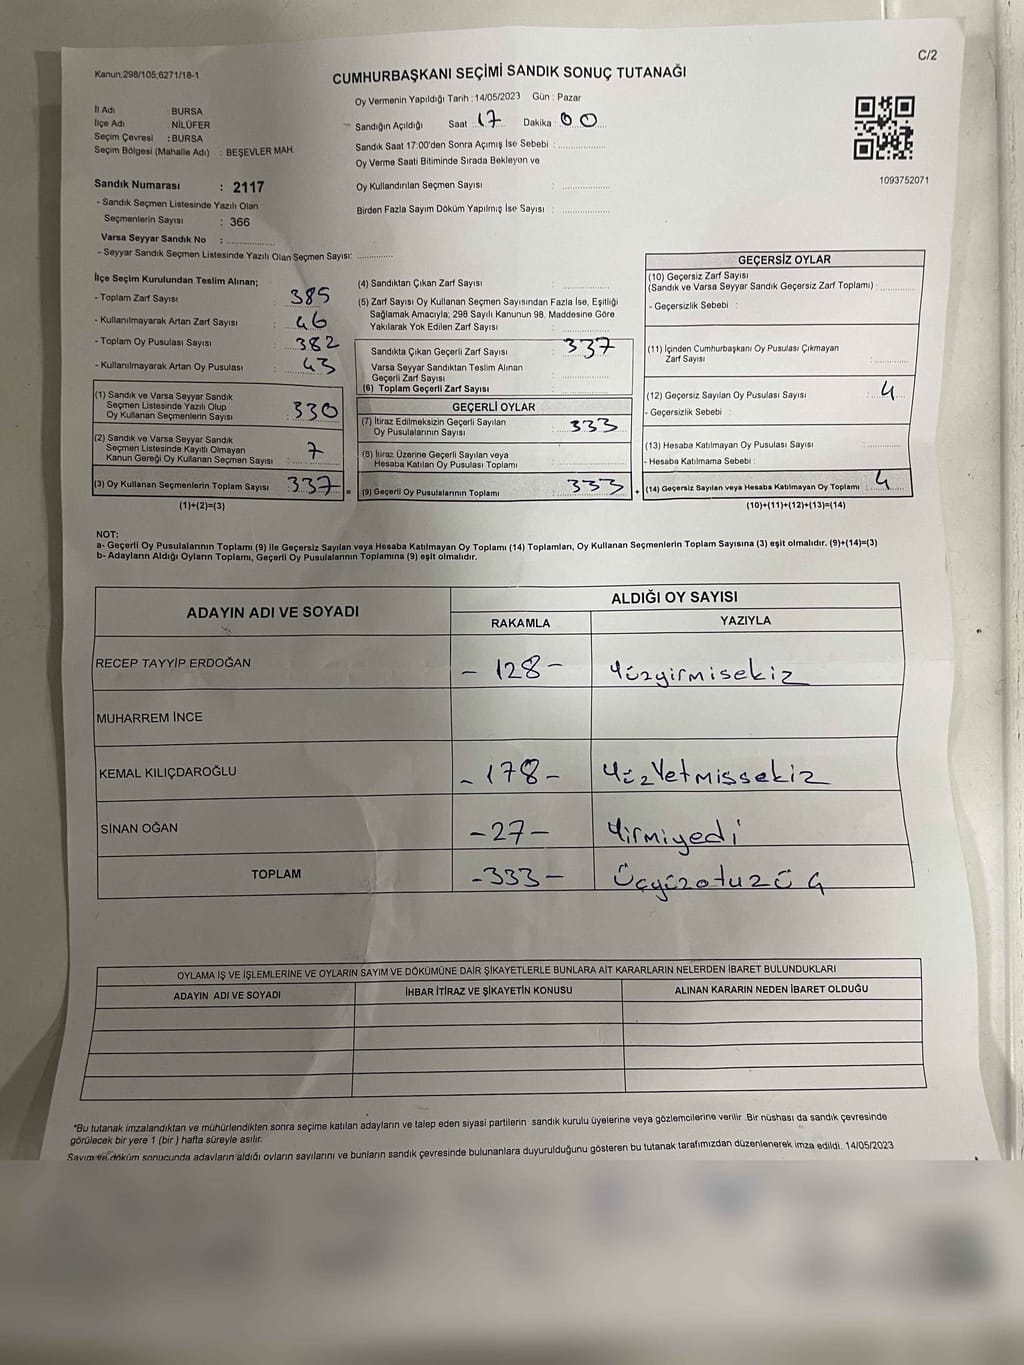 Kanun;298/105;6271/18-1
C/2
CUMHURBAŞKANI SEÇİMİ SANDIK SONUÇ TUTANAĞI
İl Adı : BURSA
İlçe Adı : NİLÜFER
Seçim Çevresi : BURSA
Seçim Bölgesi (Mahalle Adı) : BEŞEVLER MAH.
Oy Vermenin Yapıldığı Tarih : 14/05/2023 Gün : Pazar
Sandığın Açıldığı Saat : 17 Dakika : 00
Sandık Saat 17:00'den Sonra Açımış İse Sebebi :
Oy Verme Saati Bitiminde Sırada Bekleyen ve
Oy Kullandırılan Seçmen Sayısı :
Birden Fazla Sayım Döküm Yapılmış İse Sayısı :
1093752071
Sandık Numarası : 2117
- Sandık Seçmen Listesinde Yazılı Olan
Seçmenlerin Sayısı : 366
Varsa Seyyar Sandık No :
- Seyyar Sandık Seçmen Listesinde Yazılı Olan Seçmen Sayısı:
İlçe Seçim Kurulundan Teslim Alınan;
- Toplam Zarf Sayısı : 385
- Kullanılmayarak Artan Zarf Sayısı : 46
- Toplam Oy Pusulası Sayısı : 382
- Kullanılmayarak Artan Oy Pusulası : 43
(1) Sandık ve Varsa Seyyar Sandık
Seçmen Listesinde Yazılı Olup
Oy Kullanan Seçmenlerin Sayısı : 330
(2) Sandık ve Varsa Seyyar Sandık
Seçmen Listesinde Kayıtlı Olmayan
Kanun Gereği Oy Kullanan Seçmen Sayısı : 7
(3) Oy Kullanan Seçmenlerin Toplam Sayısı : 337 =
(1)+(2)=(3)
(4) Sandıktan Çıkan Zarf Sayısı :
(5) Zarf Sayısı Oy Kullanan Seçmen Sayısından Fazla İse, Eşitliği
Sağlamak Amacıyla; 298 Sayılı Kanunun 98. Maddesine Göre
Yakılarak Yok Edilen Zarf Sayısı :
Sandıkta Çıkan Geçerli Zarf Sayısı : 337
Varsa Seyyar Sandıktan Teslim Alınan
Geçerli Zarf Sayısı :
(6) Toplam Geçerli Zarf Sayısı :
GEÇERLİ OYLAR
(7) İtiraz Edilmeksizin Geçerli Sayılan
Oy Pusulalarının Sayısı : 333
(8) İtiraz Üzerine Geçerli Sayılan veya
Hesaba Katılan Oy Pusulası Toplamı :
(9) Geçerli Oy Pusulalarının Toplamı : 333 +
GEÇERSİZ OYLAR
(10) Geçersiz Zarf Sayısı
(Sandık ve Varsa Seyyar Sandık Geçersiz Zarf Toplamı) :
- Geçersizlik Sebebi :
(11) İçinden Cumhurbaşkanı Oy Pusulası Çıkmayan
Zarf Sayısı :
(12) Geçersiz Sayılan Oy Pusulası Sayısı : 4
- Geçersizlik Sebebi :
(13) Hesaba Katılmayan Oy Pusulası Sayısı :
- Hesaba Katılmama Sebebi :
(14) Geçersiz Sayılan veya Hesaba Katılmayan Oy Toplamı : 4
(10)+(11)+(12)+(13)=(14)
NOT:
a- Geçerli Oy Pusulalarının Toplamı (9) ile Geçersiz Sayılan veya Hesaba Katılmayan Oy Toplamı (14) Toplamları, Oy Kullanan Seçmenlerin Toplam Sayısına (3) eşit olmalıdır. (9)+(14)=(3)
b- Adayların Aldığı Oyların Toplamı, Geçerli Oy Pusulalarının Toplamına (9) eşit olmalıdır.
ADAYIN ADI VE SOYADI
ALDIĞI OY SAYISI
RAKAMLA YAZIYLA
RECEP TAYYİP ERDOĞAN - 128 - Yüzyirmisekiz
MUHARREM İNCE
KEMAL KILIÇDAROĞLU - 178 - YüzYetmişsekiz
SİNAN OĞAN - 27 - Yirmiyedi
TOPLAM - 333 - Üçyüzotuzüç
OYLAMA İŞ VE İŞLEMLERİNE VE OYLARIN SAYIM VE DÖKÜMÜNE DAİR ŞİKAYETLERLE BUNLARA AİT KARARLARIN NELERDEN İBARET BULUNDUKLARI
ADAYIN ADI VE SOYADI İHBAR İTİRAZ VE ŞİKAYETİN KONUSU ALINAN KARARIN NEDEN İBARET OLDUĞU
*Bu tutanak imzalandıktan ve mühürlendikten sonra seçime katılan adayların ve talep eden siyasi partilerin sandık kurulu üyelerine veya gözlemcilerine verilir .Bir nüshası da sandık çevresinde
görülecek bir yere 1 (bir ) hafta süreyle asılır.
Sayım ve döküm sonucunda adayların aldığı oyların sayılarını ve bunların sandık çevresinde bulunanlara duyurulduğunu gösteren bu tutanak tarafımızdan düzenlenerek imza edildi. 14/05/2023